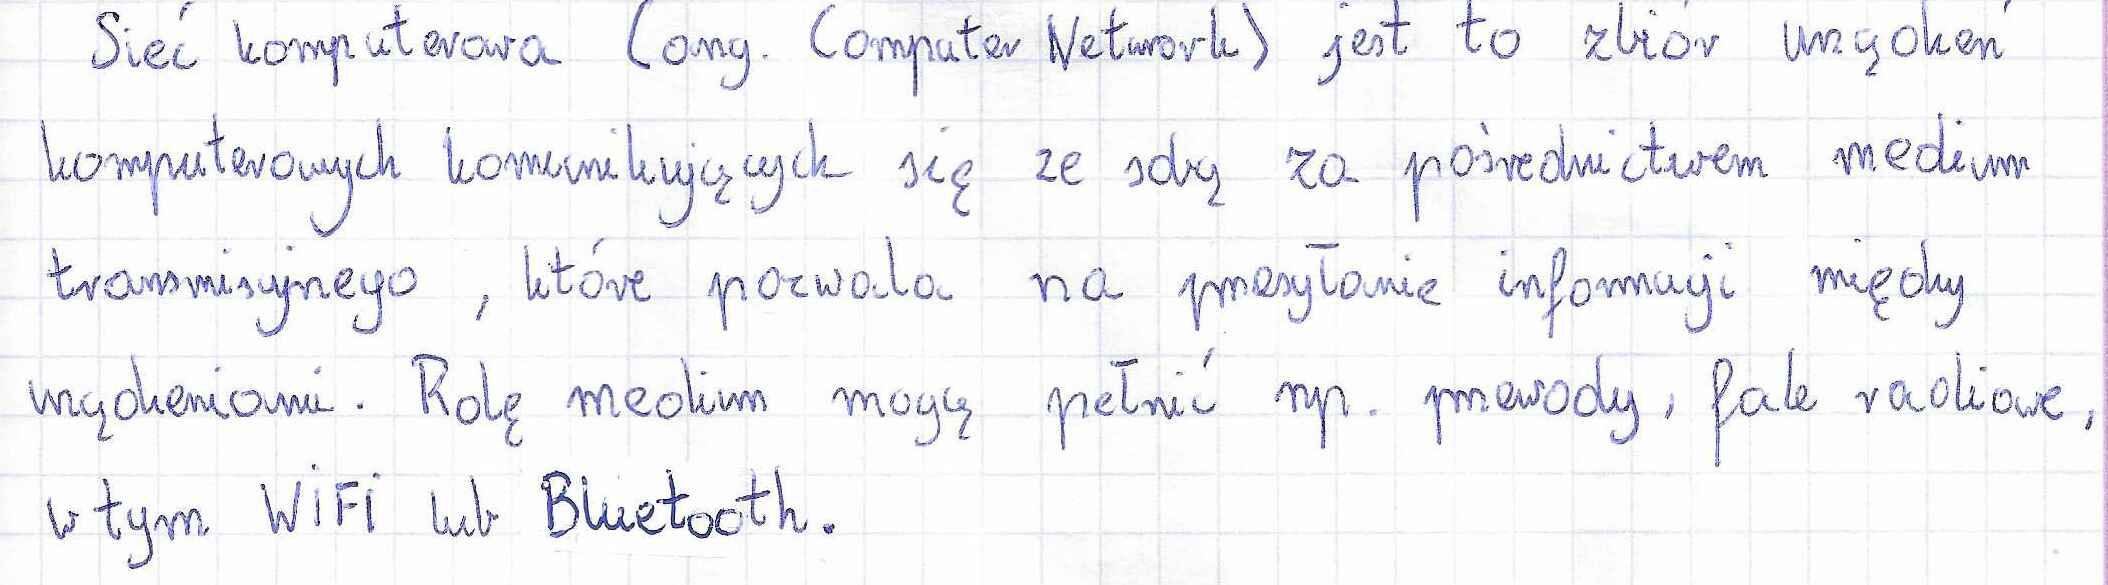 Sieć komputerowa (ang. Computer Network) jest to zbiór urządzeń
komputerowych komunikujących się ze sobą za pośrednictwem medium
transmisyjnego, które pozwala na przesyłanie informacji między
urządzeniami. Rolę medium mogą pełnić np. przewody, fale radiowe,
w tym WiFi lub Bluetooth.